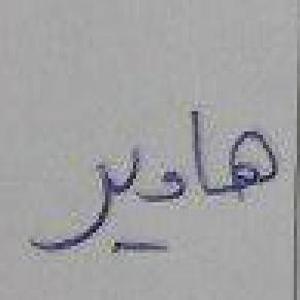 هاویر